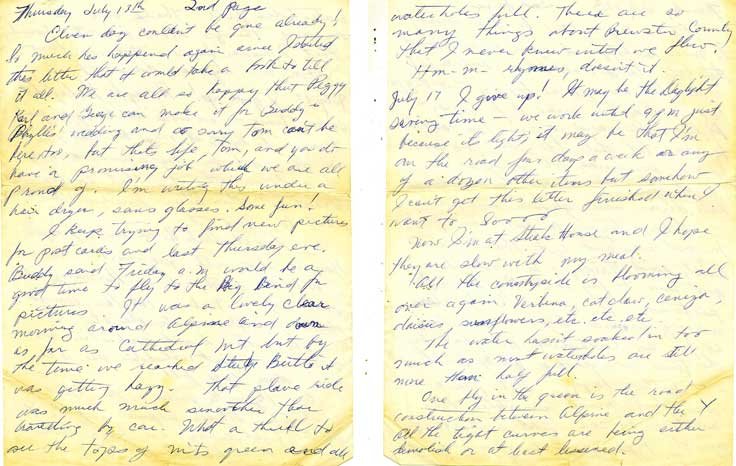 Thursday July 13th 2nd page
Eleven day couldn't be gone already!
So much has happened again since I started
this letter that it would take a book to tell
it all. We are all so happy that Peggy
Karl and George can make it for Buddy &
Phyllis' wedding and so sorry Tom can't be
here too, but that's life, Tom, and you do
have a promising job which we are all
proud of. I'm writing this under a
hair dryer, sans glasses. Some fun!
I keep trying to find new pictures
for post cards and last Thursday eve.
Buddy said Friday a.m would be a
good time to fly to the Big Bend for
pictures. It was a lovely clear
morning around Alpine and down
as far as Cathedral Mt but by
the time we reached Butte it
was getting hazy. That plane ride
was much much smoother than
traveling by car. What a thrill to
see the topes of mts green and all
waterholes full. There are so
many things about Brewster County
that I never knew until we flew.
Hm-m- rhymes, doesn't it.
July 17 I give up! It may be the Daylight
saving time - we work until 9 pm just
because it's light; it may be that I'm
on the road four days a week or any
of a dozen other items but somehow
I can't get this letter finished when I
want to. Sooooo
Now I'm at Steak House and I hope
they are slow with my meal.
All the countryside is blooming all
over again. Verbena, catclaw, ceniza,
daisies, sunflowers, etc. etc. etc
The water hasn't soaked in too
much as most waterholes are still
more than half full.
One fly in the green is the road
construction between Alpine and the Y
All the tight curves are being either
demolish or at best lessened.